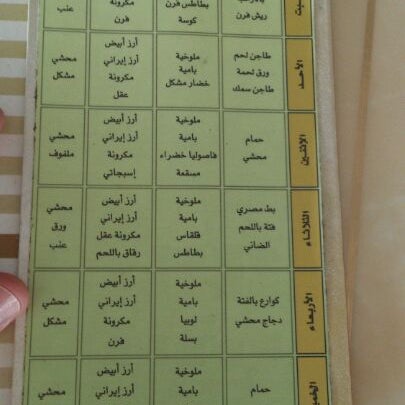 بطاطس فرن
مكرونة
عنب
ريش فرن
كوسة
فرن
الأحد
طاجن لحم
ورق لحمة
طاجن سمك
ملوخية
بامية
خضار مشكل
أرز أبيض
أرز إيراني
مكرونة
عقل
محشي
مشكل
الإثنين
حمام
محشي
ملوخية
بامية
فاصوليا خضراء
مسقعة
أرز أبيض
أرز إيراني
مكرونة
إسباجتي
محشي
ملفوف
الثلاثاء
بط مصري
فتة باللحم
الضاني
ملوخية
بامية
قلقاس
بطاطس
أرز أبيض
أرز إيراني
مكرونة عقل
رقاق باللحم
محشي
ورق
عنب
الأربعاء
كوارع بالفتة
دجاج محشي
ملوخية
بامية
لوبيا
بسلة
أرز أبيض
أرز إيراني
مكرونة
فرن
محشي
مشكل
حمام
ملوخية
بامية
أرز أبيض
أرز إيراني
محشي